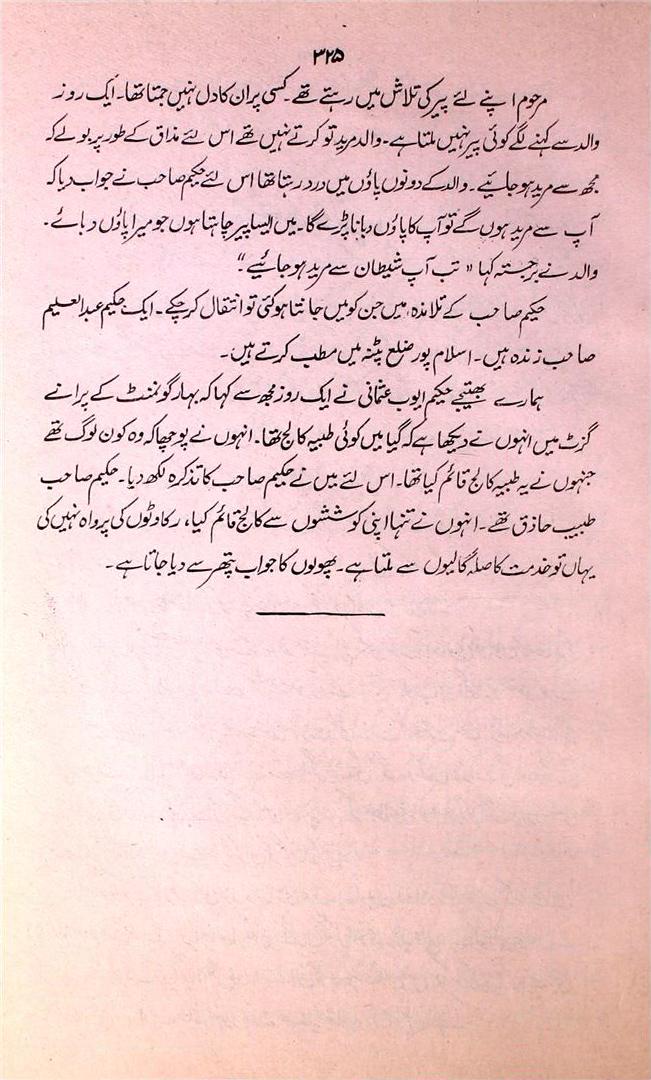 ۳۲۵
مرحوم اپنے لئے پیر کی تلاش میں رہتے تھے۔ کسی پر ان کا دل نہیں جمتا تھا۔ ایک روز
والد سے کہنے لگے کوئی پیر نہیں ملتا ہے۔ والد مرید تو کرتے نہیں تھے اس لئے مذاق کے طور پر بولے کہ
مجھ سے مرید ہو جائیے۔ والد کے دونوں پاؤں میں درد رہتا تھا اس لئے حکیم صاحب نے جواب دیا کہ
آپ سے مرید ہوں گے تو آپ کا پاؤں دبانا پڑے گا۔ میں ایسا پیر چاہتا ہوں جو میرا پاؤں دبائے۔
والد نے برجستہ کہا "تب آپ شیطان سے مرید ہو جائیے۔"
حکیم صاحب کے تلامذہ میں جن کو میں جانتا ہو گئی تو انتقال کر چکے۔ ایک حکیم عبد العلیم
صاحب زندہ ہیں۔ اسلام پور ضلع پٹنہ میں مطب کرتے ہیں۔
ہمارے بھتیجے حکیم ایوب عثمانی نے ایک روز مجھ سے کہا کہ بہار گورنمنٹ کے پرانے
گزٹ میں انہوں نے دیکھا ہے کہ گیا میں کوئی طبیہ کالج تھا۔ انہوں نے پوچھا کہ وہ کون لوگ تھے
جنہوں نے یہ طبیہ کالج قائم کیا تھا۔ اس لئے میں نے حکیم صاحب کا تذکرہ لکھ دیا۔ حکیم صاحب
طبیب حاذق تھے۔ انہوں نے تنہا اپنی کوششوں سے کالج قائم کیا، رکاوٹوں کی پرواہ نہیں کی
یہاں تو خدمت کا صلہ گالیوں سے ملتا ہے۔ پھولوں کا جواب پتھر سے دیا جاتا ہے۔